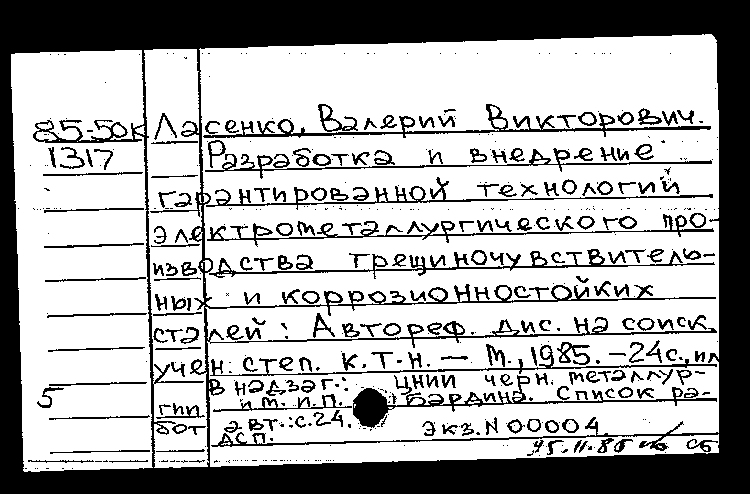 85-50к Ласенко, Валерий Викторович.
1317 Разработка и внедрение
гарантированной технологий
электрометаллургического про-
изводства трещиночувствитель-
ных и коррозионностойких
сталей: Автореф. дис. на соиск.
учен. степ. к.т.н. — М., 1985. – 24 с., ил
В надзаг.: ЦНИИ черн. металлур-
5 гии им. И.П. Бардина. Список ра-
бот авт.: с. 24.
ДСП. Экз. N 00004.
СБ